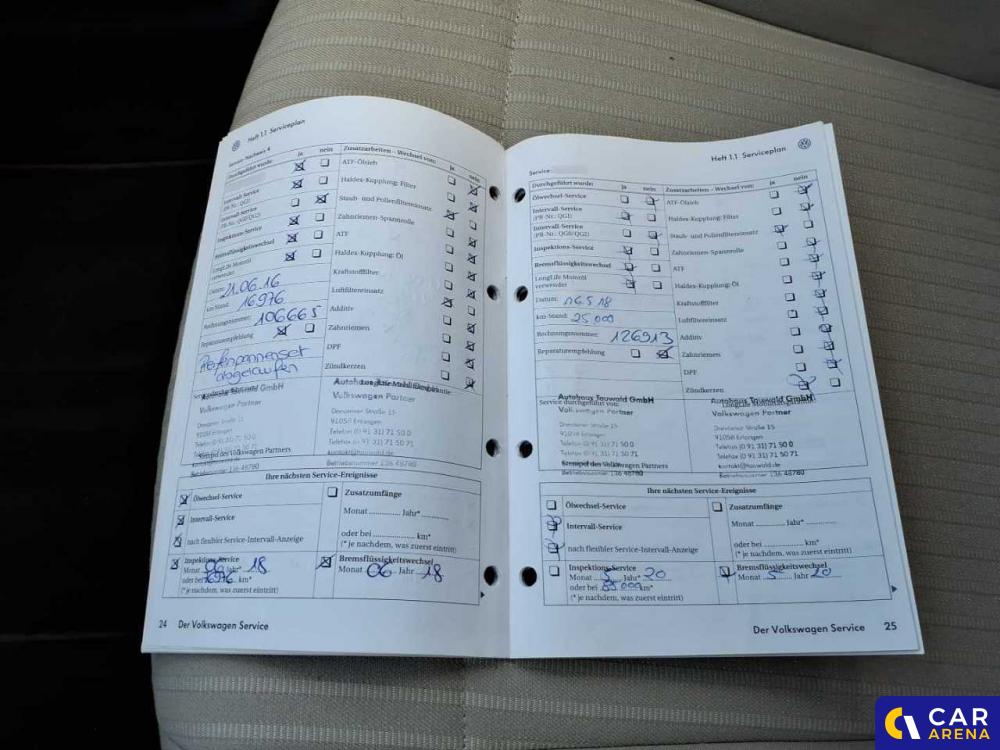 Heft 1.1 Serviceplan
Service-Nachweis 4
Durchgeführt wurde: ja nein
Intervall-Service
(PR-Nr.: QG1)
Intervall-Service
(PR-Nr.: QG0/QG2)
Inspektions-Service
Bremsflüssigkeitswechsel
LongLife Motoröl
verwendet
Datum: 21.06.16
km-Stand: 16976
Rechnungsnummer: 106665
Reparaturempfehlung
Reifenpannenset
abgelaufen
Zusatzarbeiten – Wechsel von: ja nein
ATF-Ölsieb
Haldex-Kupplung: Filter
Staub- und Pollenfiltereinsatz
Zahnriemen-Spannrolle
ATF
Haldex-Kupplung: Öl
Kraftstofffilter
Luftfiltereinsatz
Additiv
Zahnriemen
DPF
Zündkerzen
Autohaus Tauwald GmbH
Volkswagen Partner
Drausnier Straße 15
91058 Erlangen
Telefon (0 91 31) 71 50 0
Telefax (0 91 31) 71 50 71
Stempel des Volkswagen Partners
Autohaus
Volkswagen Partner
Straße 15
91058 Erlangen
Telefon (0 91 31) 71 50 0
Telefax (0 91 31) 71 50 71
kontakt@tauwald.de
Betriebsnummer 136 48780
Ihre nächsten Service-Ereignisse
Ölwechsel-Service
Intervall-Service
nach flexibler Service-Intervall-Anzeige
Inspektions-Service
Monat 06 Jahr* 18
oder bei km*
(* je nachdem, was zuerst eintritt)
Zusatzumfänge
Monat Jahr*
oder bei km*
(* je nachdem, was zuerst eintritt)
Bremsflüssigkeitswechsel
Monat 06 Jahr 18
24 Der Volkswagen Service
Heft 1.1 Serviceplan
Service
Durchgeführt wurde: ja nein
Ölwechsel-Service
Intervall-Service
(PR-Nr.: QG1)
Intervall-Service
(PR-Nr.: QG0/QG2)
Inspektions-Service
Bremsflüssigkeitswechsel
LongLife Motoröl
verwendet
Datum: 16.5.18
km-Stand: 25 000
Rechnungsnummer: 126913
Reparaturempfehlung
Zusatzarbeiten – Wechsel von: ja nein
ATF-Ölsieb
Haldex-Kupplung: Filter
Staub- und Pollenfiltereinsatz
Zahnriemen-Spannrolle
ATF
Haldex-Kupplung: Öl
Kraftstofffilter
Luftfiltereinsatz
Additiv
Zahnriemen
DPF
Zündkerzen
Service durchgeführt von:
Autohaus Tauwald GmbH
Volkswagen Partner
Straße 15
91058 Erlangen
Telefon (0 91 31) 71 50 0
Telefax (0 91 31) 71 50 71
Stempel des Volkswagen Partners
Betriebsnummer 136 48780
Autohaus Tauwald GmbH
Volkswagen Partner
Straße 15
91058 Erlangen
Telefon (0 91 31) 71 50 0
Telefax (0 91 31) 71 50 71
kontakt@tauwald.de
Betriebsnummer 136 48780
Ihre nächsten Service-Ereignisse
Ölwechsel-Service
Intervall-Service
nach flexibler Service-Intervall-Anzeige
Inspektions-Service
Monat 5 Jahr* 20
oder bei km*
(* je nachdem, was zuerst eintritt)
Zusatzumfänge
Monat Jahr*
oder bei km*
(* je nachdem, was zuerst eintritt)
Bremsflüssigkeitswechsel
Monat 5 Jahr 20
Der Volkswagen Service 25
CAR
ARENA